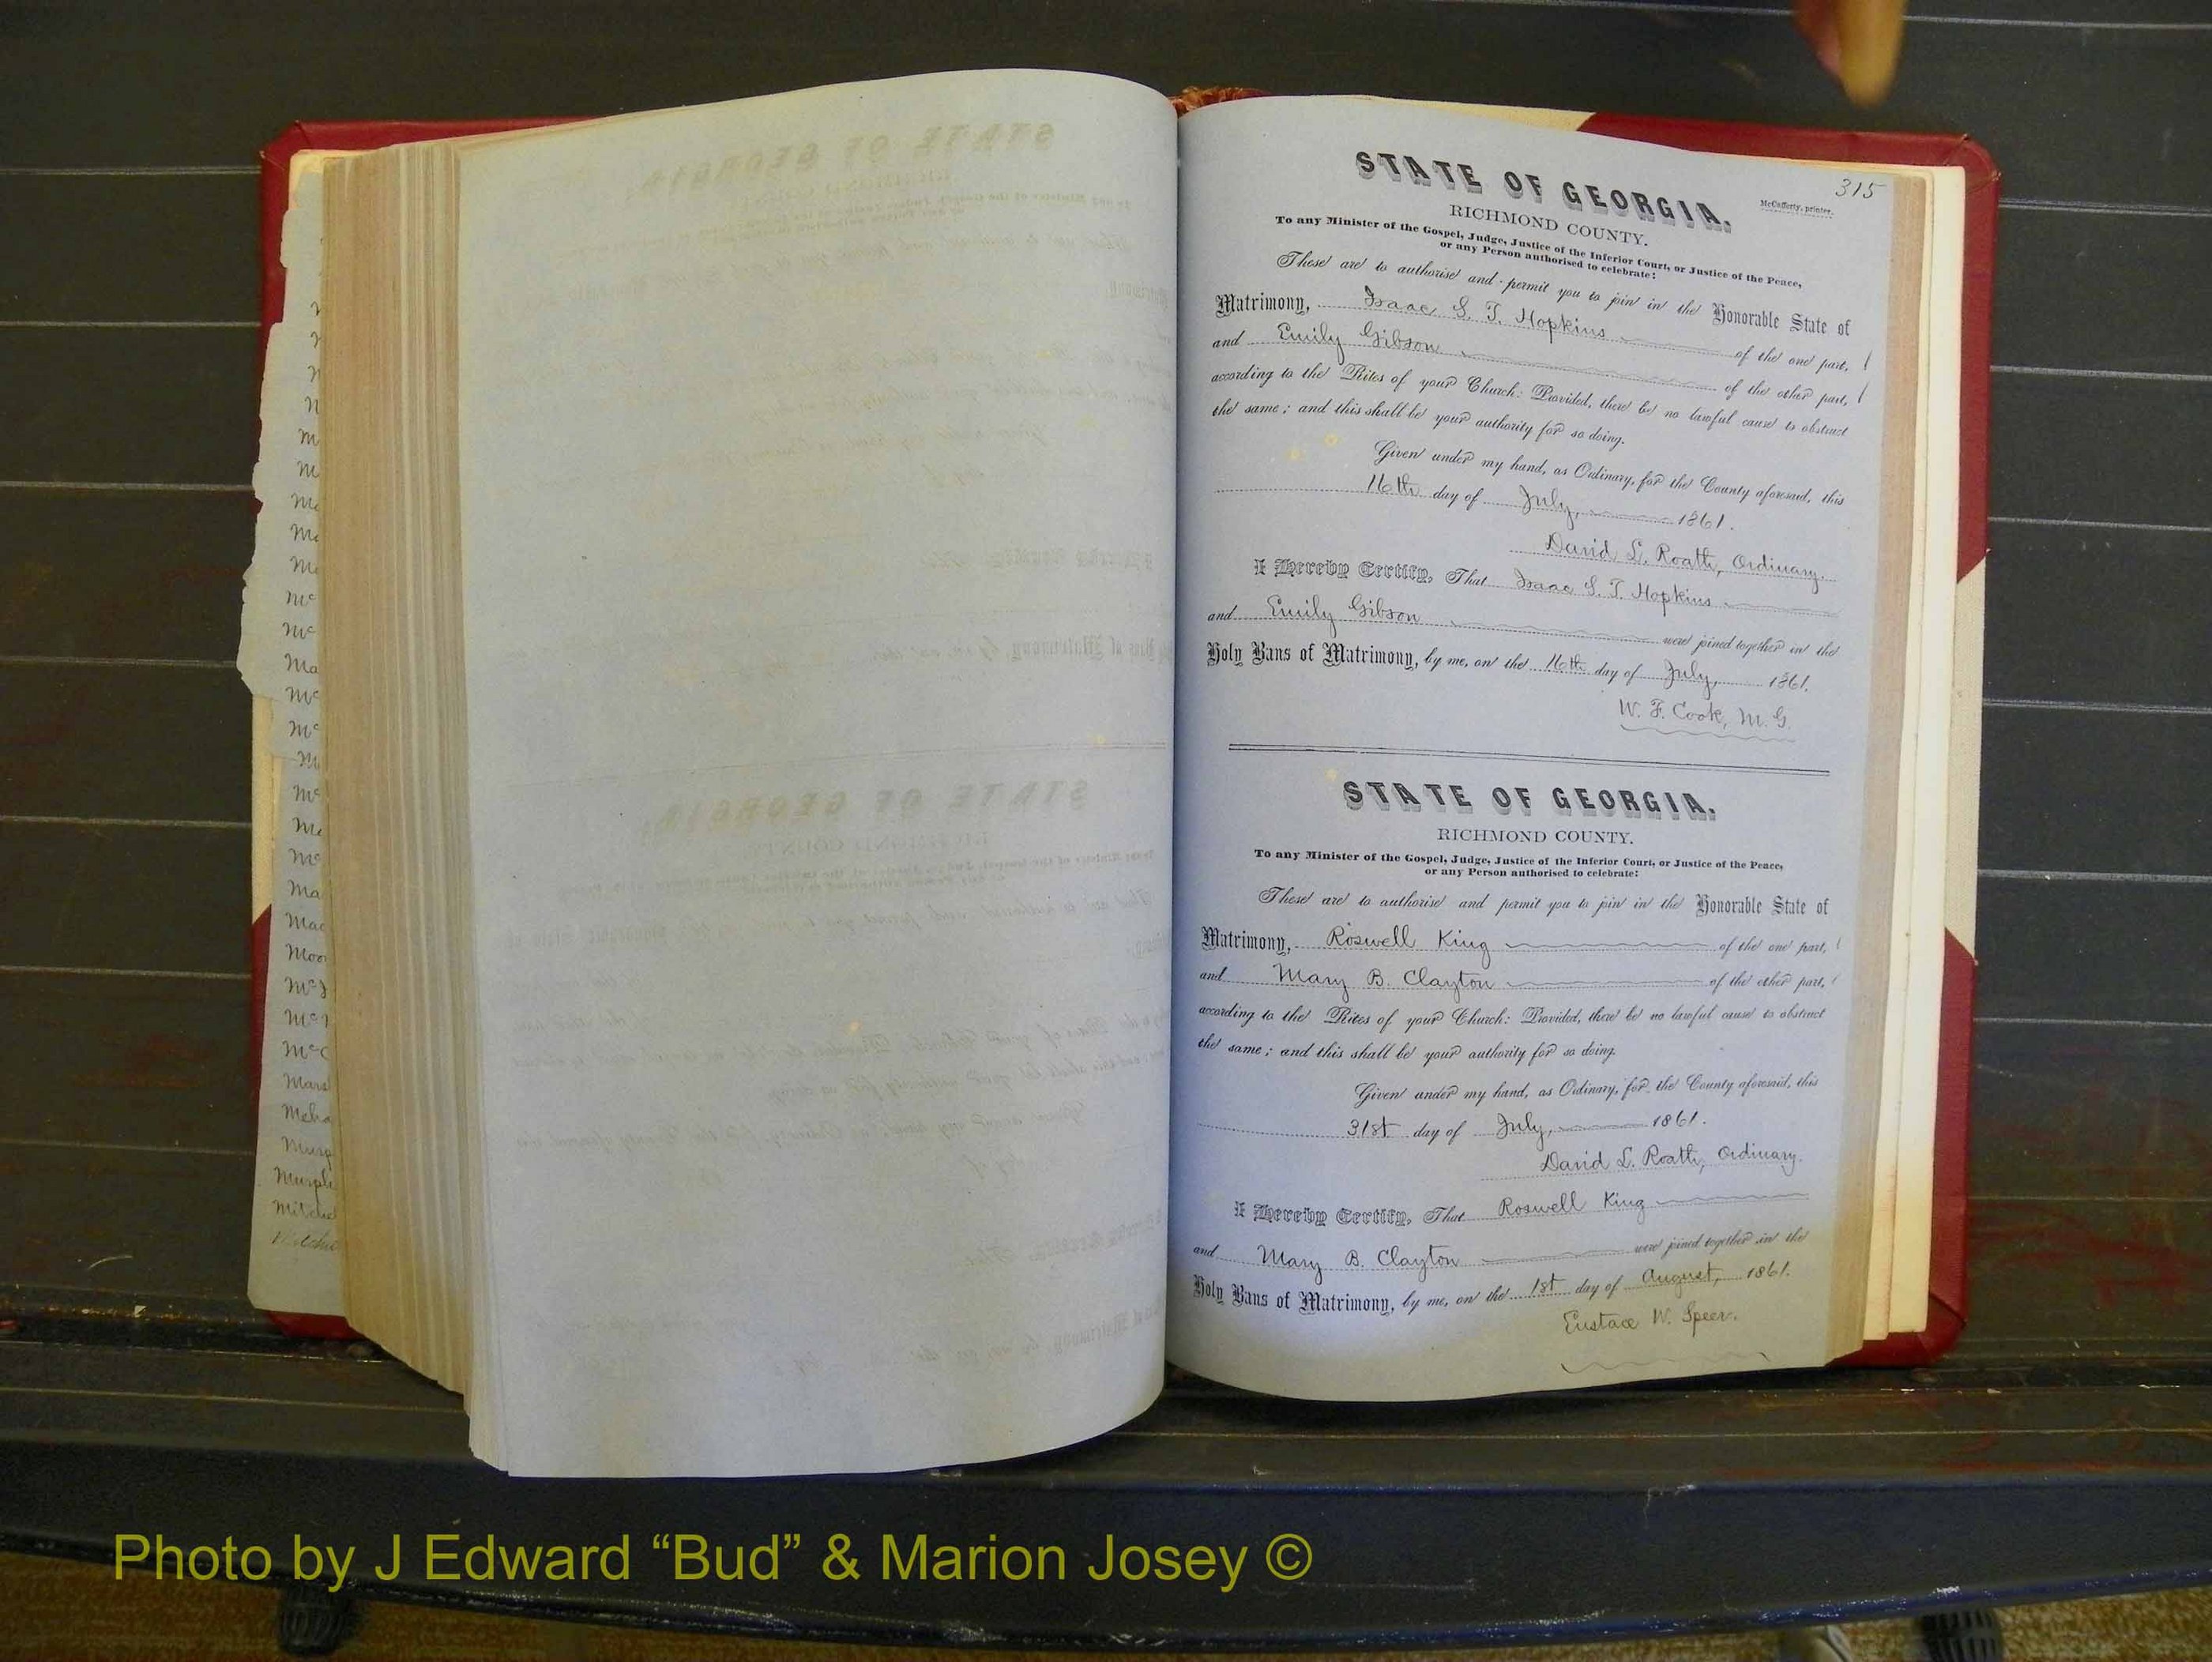 315
STATE OF GEORGIA.
McCafferty, printer.
RICHMOND COUNTY.
To any Minister of the Gospel, Judge, Justice of the Inferior Court, or Justice of the Peace,
or any Person authorised to celebrate:
These are to authorise and permit you to join in the Honorable State of
Matrimony, Isaac S. T. Hopkins of the one part,
and Emily Gibson of the other part,
according to the Rites of your Church: Provided, there be no lawful cause to obstruct
the same; and this shall be your authority for so doing.
Given under my hand, as Ordinary, for the County aforesaid, this
16th day of July, 1861.
David L. Roath, Ordinary.
I Hereby Certify, That Isaac S. T. Hopkins
and Emily Gibson were joined together in the
Holy Bans of Matrimony, by me, on the 16th day of July, 1861.
W. F. Cook, M. G.
STATE OF GEORGIA.
RICHMOND COUNTY.
To any Minister of the Gospel, Judge, Justice of the Inferior Court, or Justice of the Peace,
or any Person authorised to celebrate:
These are to authorise and permit you to join in the Honorable State of
Matrimony, Roswell King of the one part,
and Mary B. Clayton of the other part,
according to the Rites of your Church: Provided, there be no lawful cause to obstruct
the same; and this shall be your authority for so doing.
Given under my hand, as Ordinary, for the County aforesaid, this
31st day of July, 1861.
David L. Roath, Ordinary.
I Hereby Certify, That Roswell King
and Mary B. Clayton were joined together in the
Holy Bans of Matrimony, by me, on the 1st day of August, 1861.
Eustace W. Speer.
Photo by J Edward “Bud” & Marion Josey ©